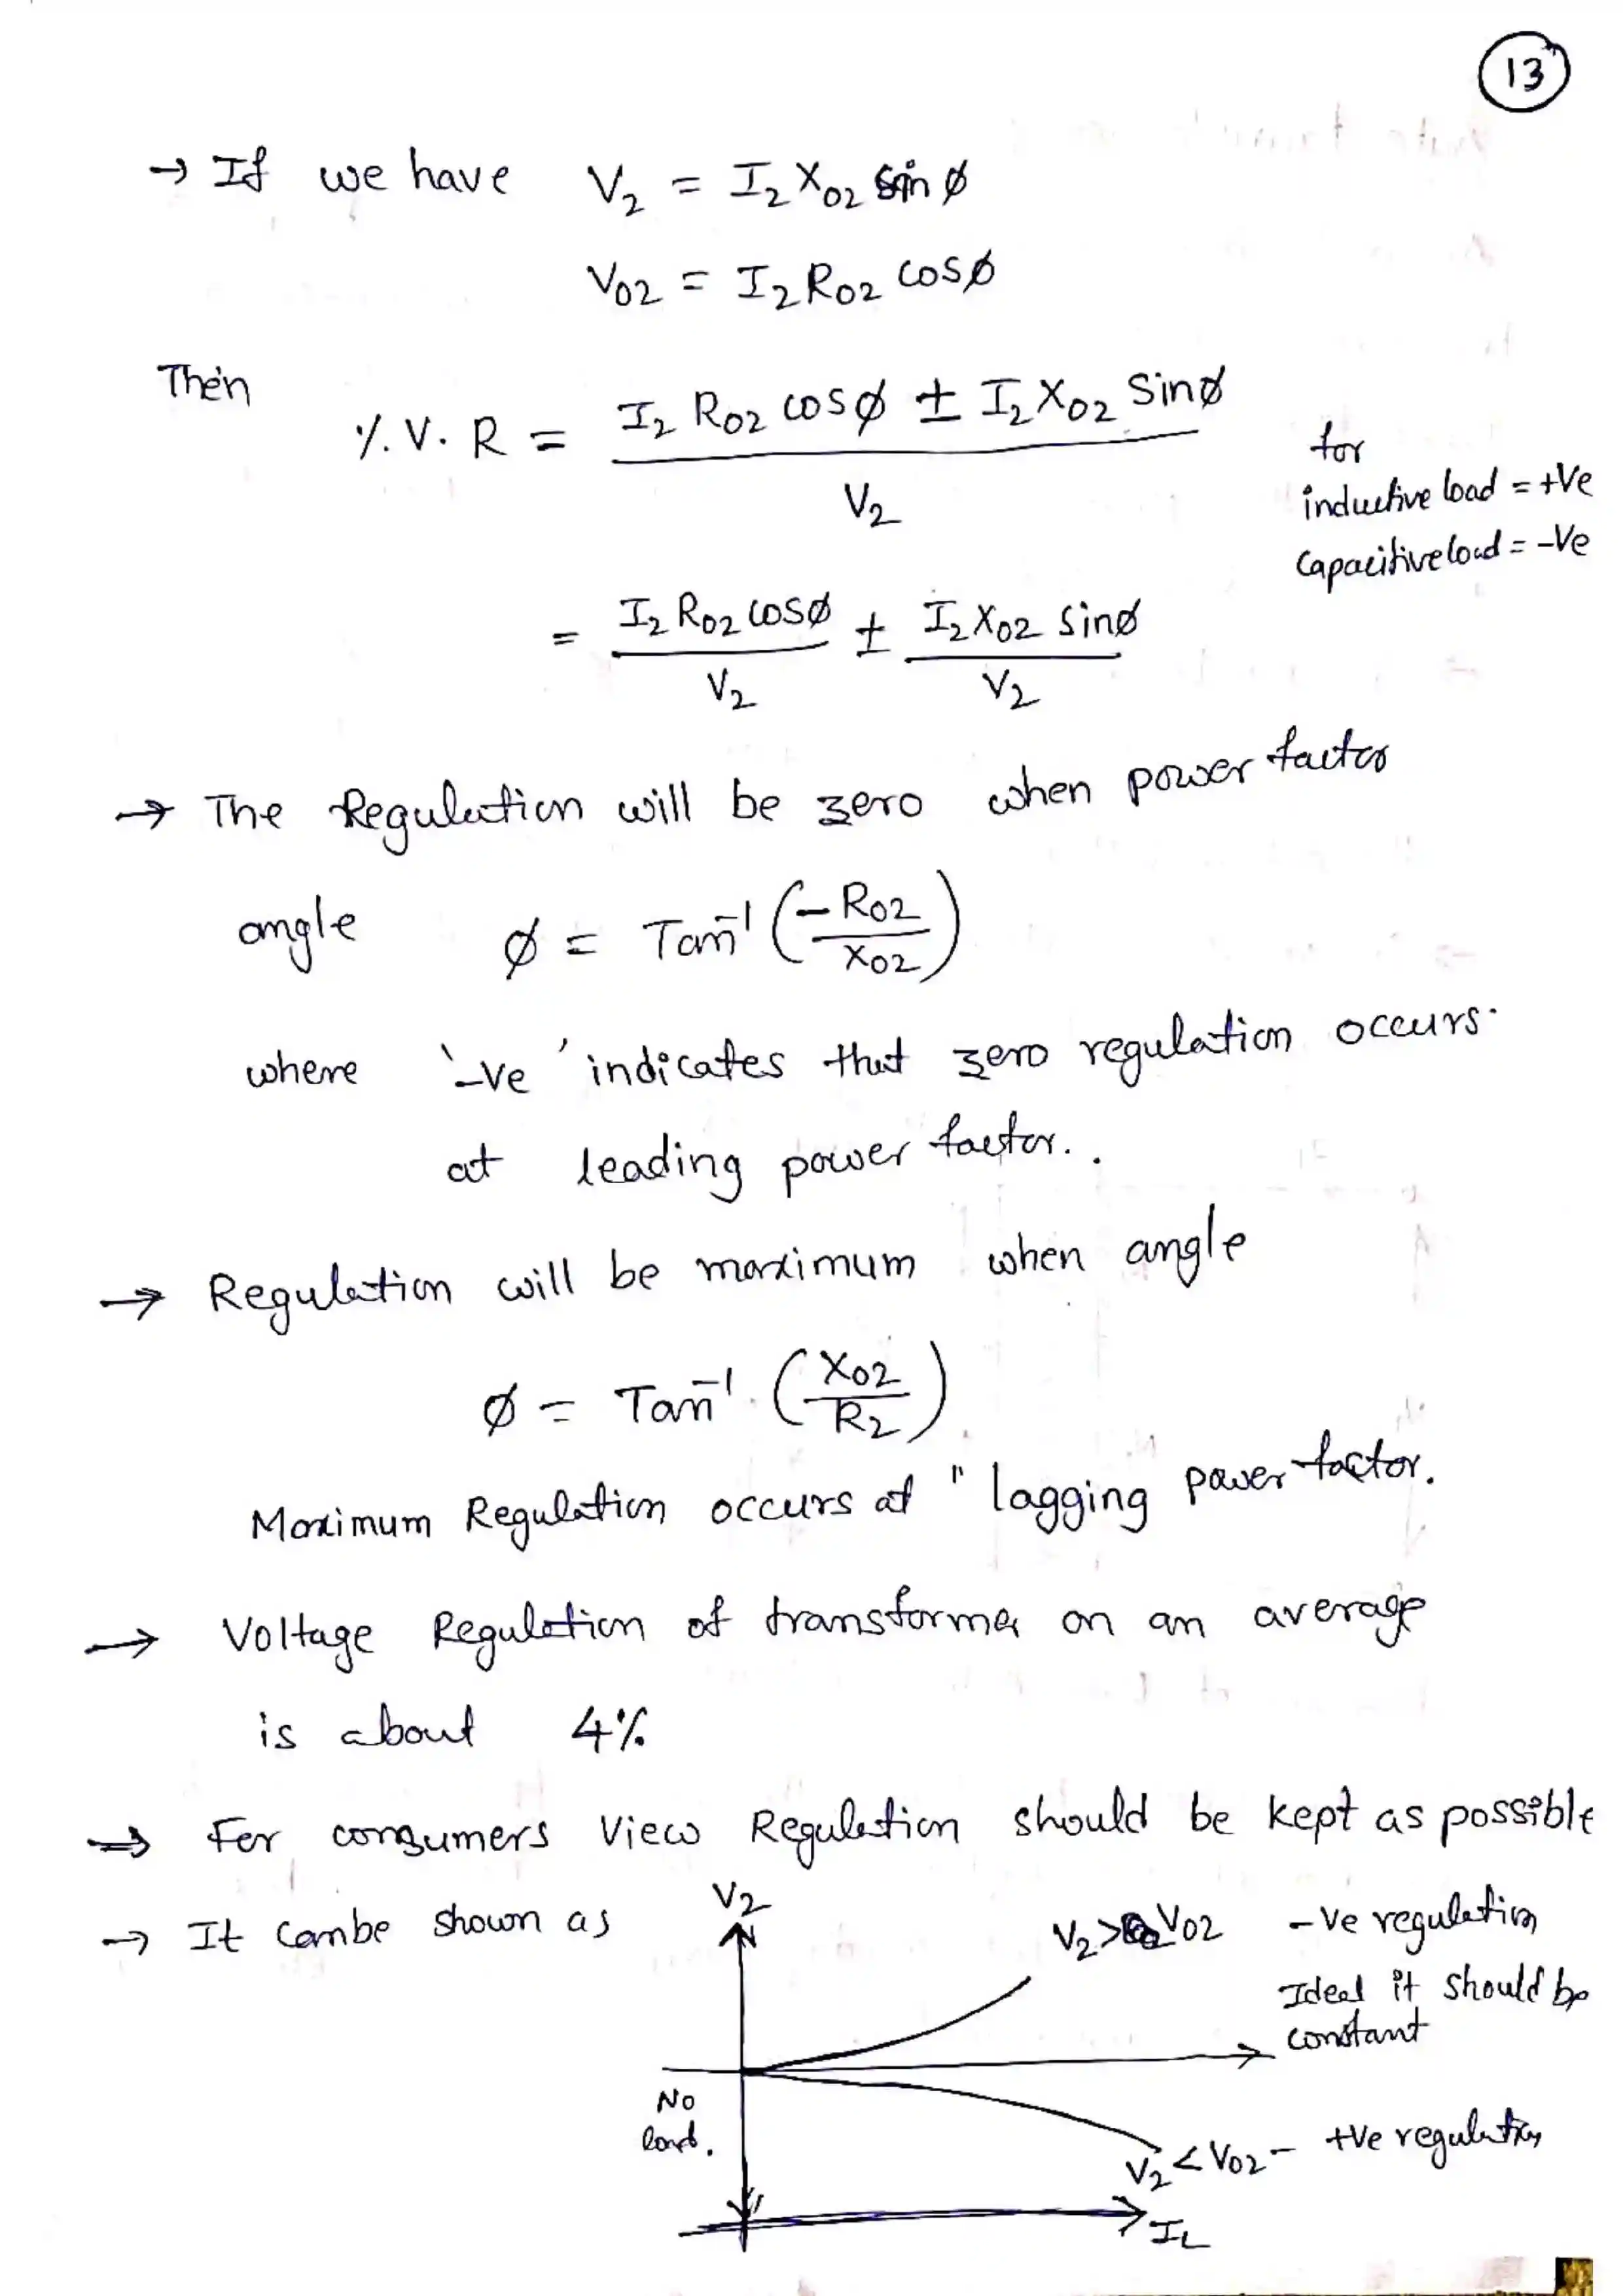 13
→ If we have V₂ = I₂ X₀₂ sin ø
V₀₂ = I₂ R₀₂ cosø
Then
%. V. R = I₂ R₀₂ cosø ± I₂ X₀₂ Sinø / V₂
for
inductive load = +Ve
Capacitive load = -Ve
= I₂ R₀₂ cosø / V₂ ± I₂ X₀₂ sinø / V₂
→ The Regulation will be zero when power factor
angle ø = Tan⁻¹ (-R₀₂ / X₀₂)
where '-ve' indicates that zero regulation occurs.
at leading power factor..
→ Regulation will be maximum when angle
ø = Tan⁻¹ (X₀₂ / R₂)
Maximum Regulation occurs at " lagging power factor.
→ Voltage Regulation of transformer on an average
is about 4%
→ For consumers View Regulation should be kept as possible
→ It can be shown as
V₂
V₂ > V₀₂ -Ve regulation
Ideal it should be
constant
No
load.
V₂ < V₀₂ - +Ve regulation
I_L